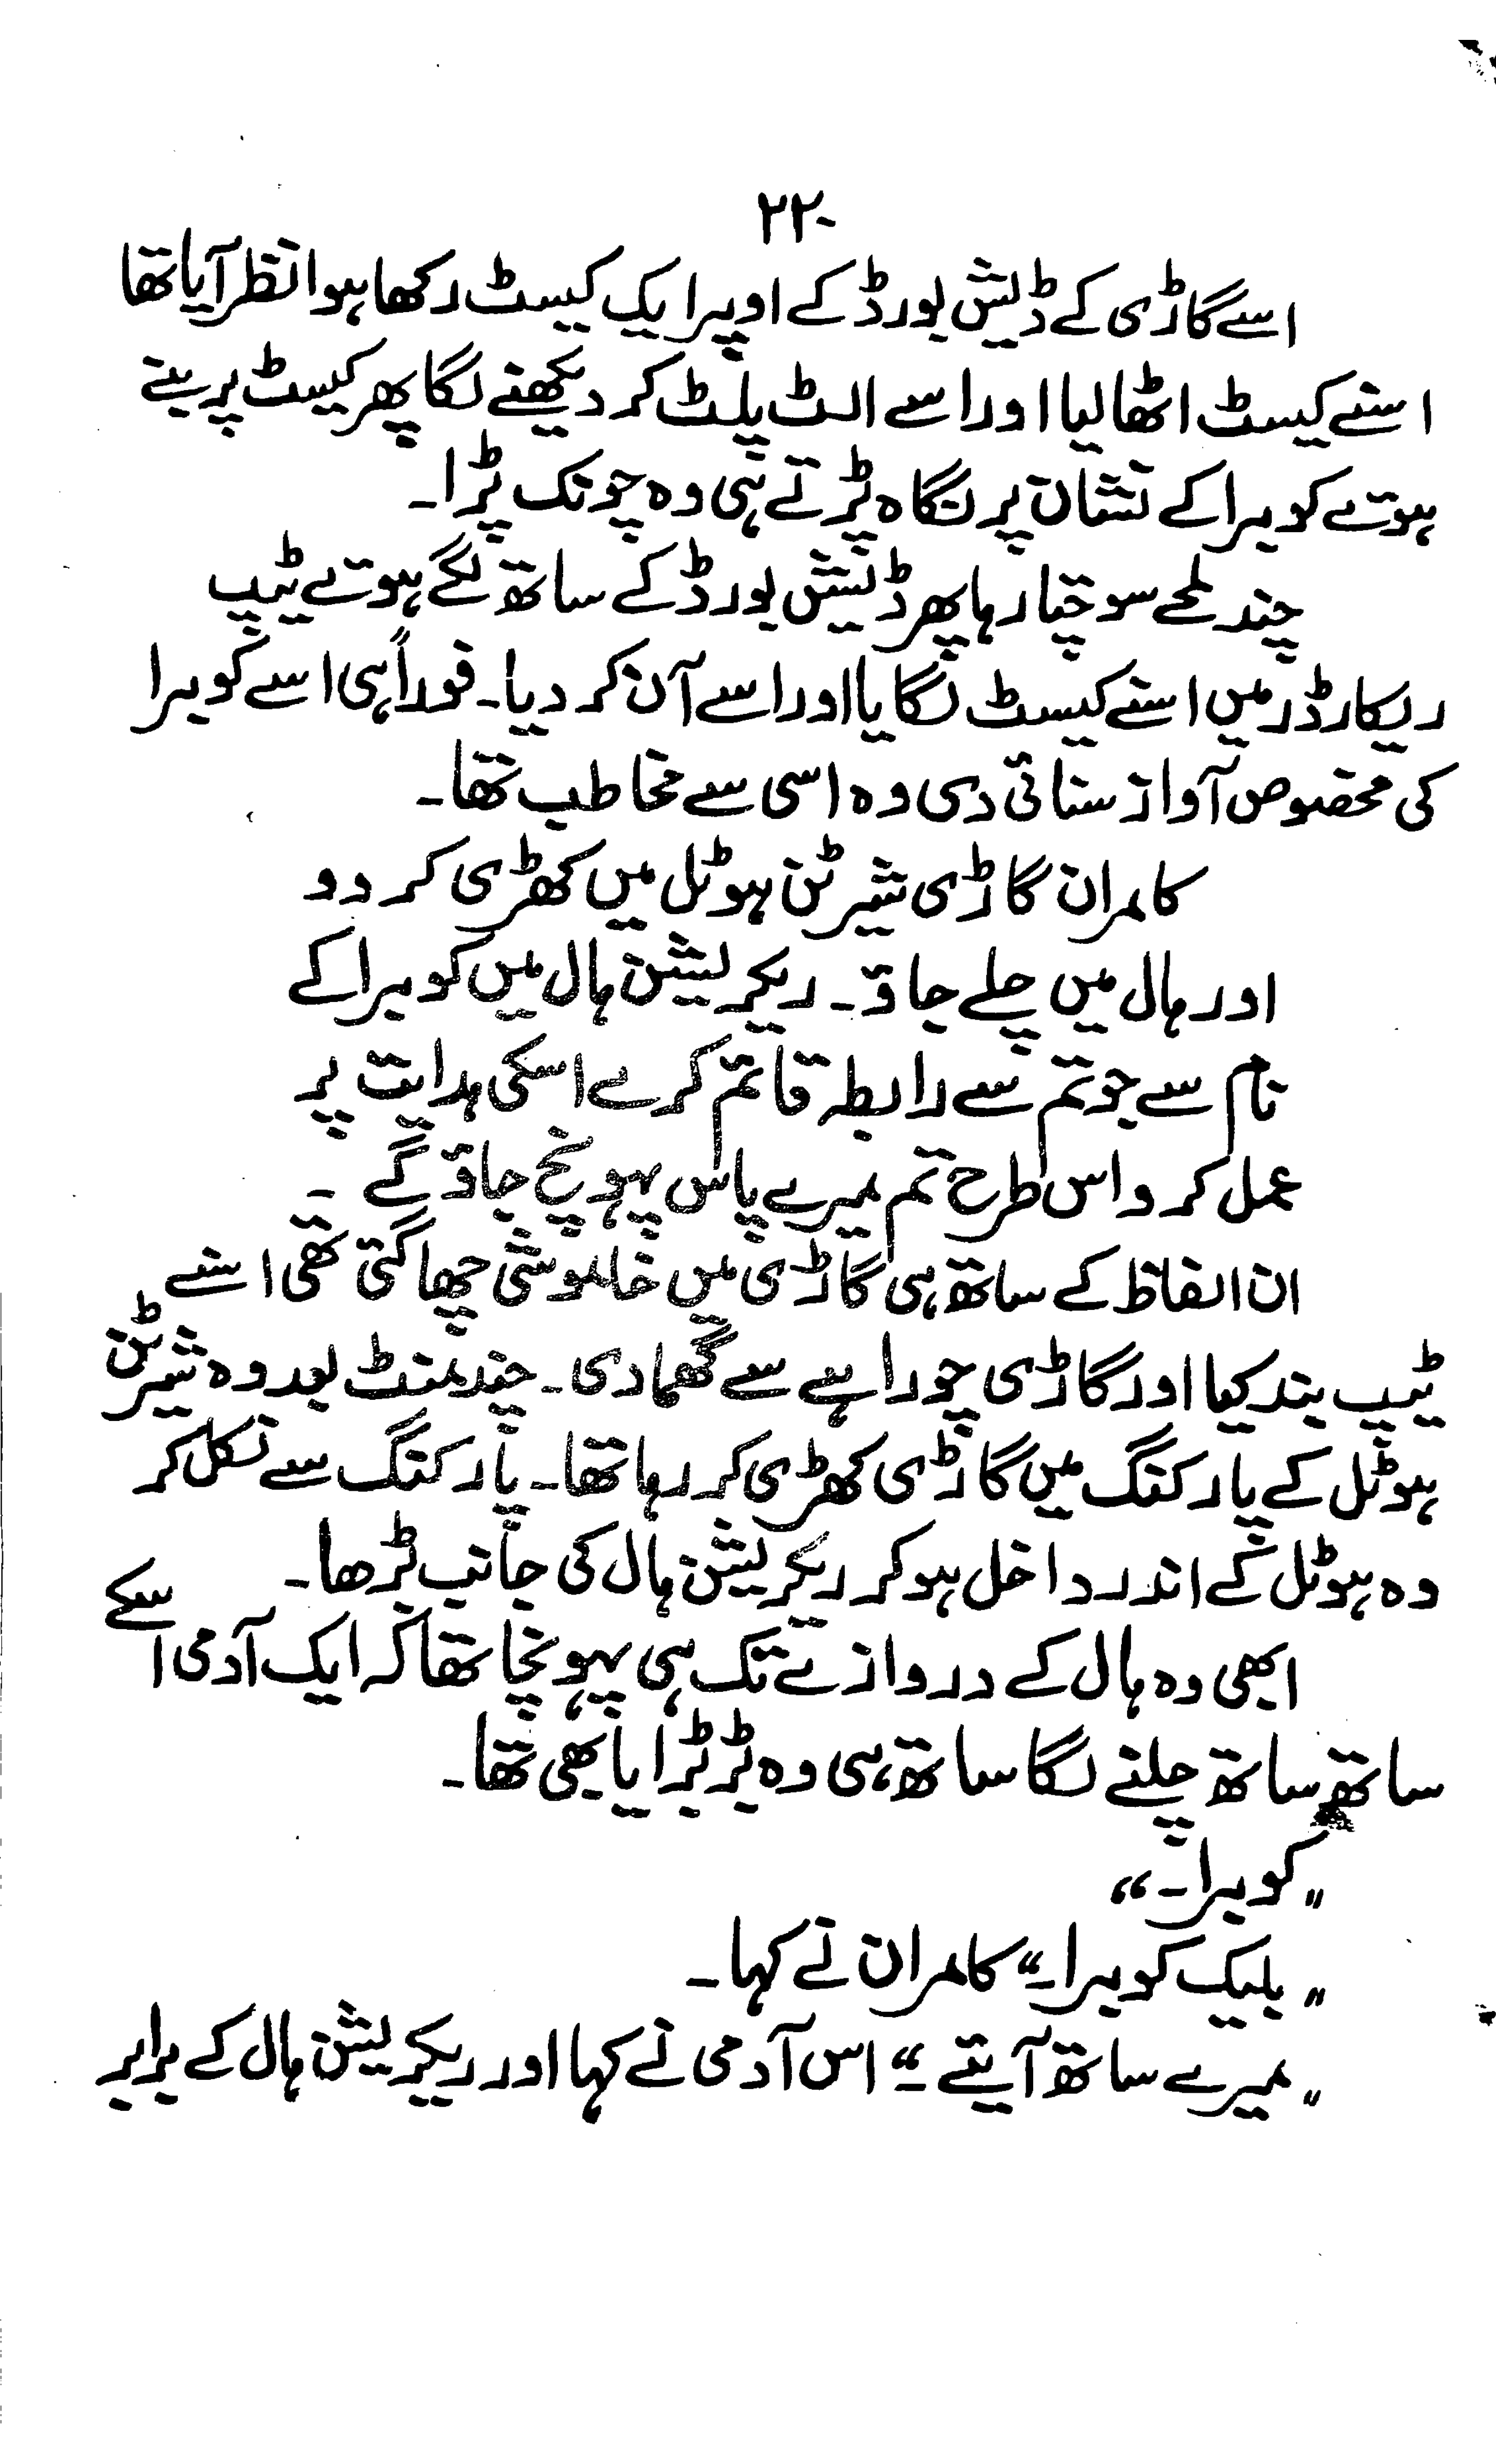 ۲۲۰
اسے گاڑی کے ڈیش بورڈ کے اوپر ایک کیسٹ رکھا ہوا نظر آیا تھا
اسنے کیسٹ اٹھا لیا اور اسے الٹ پلٹ کر دیکھنے لگا پھر کیسٹ پر بنے
ہوتے کوبرا کے نشان پر نگاہ پڑتے ہی وہ چونک پڑا۔
چند لمحے سوچتا رہا پھر ڈیش بورڈ کے ساتھ لگے ہوتے ٹیپ
ریکارڈر میں اسنے کیسٹ لگایا اور اسے آن کر دیا۔ فوراً ہی اسے کوبرا
کی مخصوص آواز سنائی دی وہ اسی سے مخاطب تھا۔
کامران گاڑی شیرٹن ہوٹل میں کھڑی کر دو
اور ہال میں چلے جاؤ۔ ریکریشن ہال میں کوبرا کے
نام سے جو تم سے رابطہ قائم کرے اسکی ہدایت پر
عمل کرو اس طرح تم میرے پاس پہونچ جاؤ گے ۔
ان الفاظ کے ساتھ ہی گاڑی میں خاموشی چھا گئی تھی اسنے
ٹیپ بند کیا اور گاڑی چوراہے سے گھما دی۔ چند منٹ بعد وہ شیرٹن
ہوٹل کے پارکنگ میں گاڑی کھڑی کر رہا تھا۔ پارکنگ سے نکل کر
وہ ہوٹل کے اندر داخل ہو کر ریکریشن ہال کی جانب بڑھا۔
ابھی وہ ہال کے دروازے تک ہی پہونچا تھا کہ ایک آدمی اسکے
ساتھ ساتھ چلنے لگا ساتھ ہی وہ بڑبڑایا بھی تھا۔
"کوبرا۔"
"بلیک کوبرا۔" کامران نے کہا۔
"میرے ساتھ آیئے۔" اس آدمی نے کہا اور ریکریشن ہال کے برابر